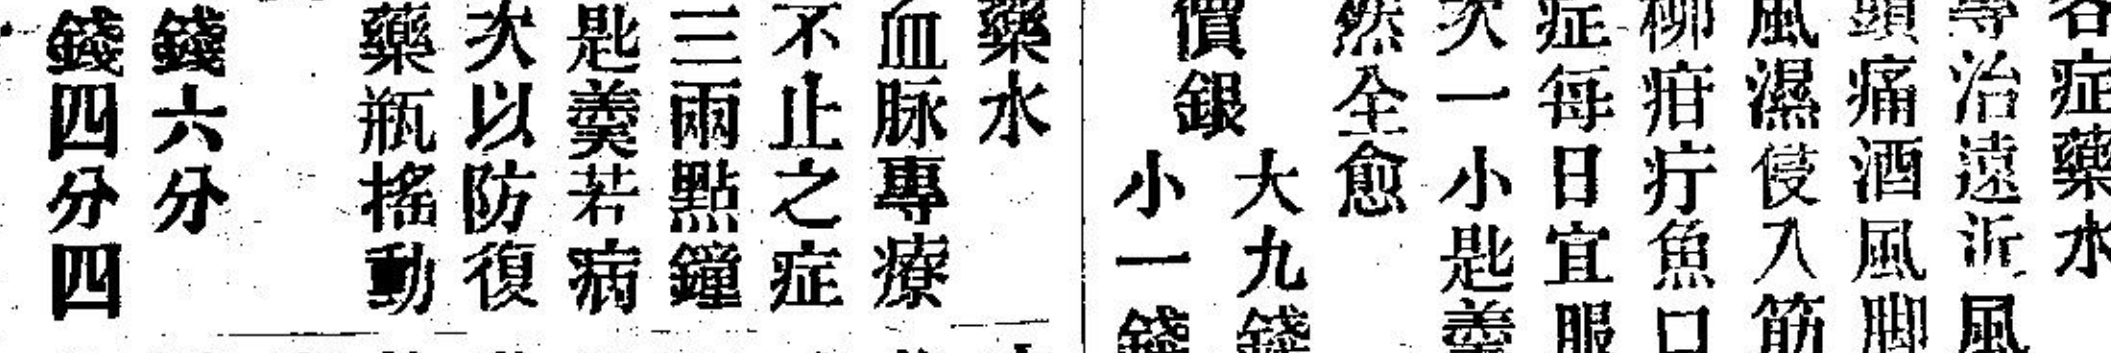 各症藥水
專治遠近風
頭痛酒風脚
風濕侵入筋
柳疳疔魚口
症每日宜服
次一小匙羹
然全愈
價銀
大九錢
小一錢
藥水
血脉專療
不止之症
三兩點鐘
匙羹若病
次以防復
藥瓶搖動
錢六分
錢四分四